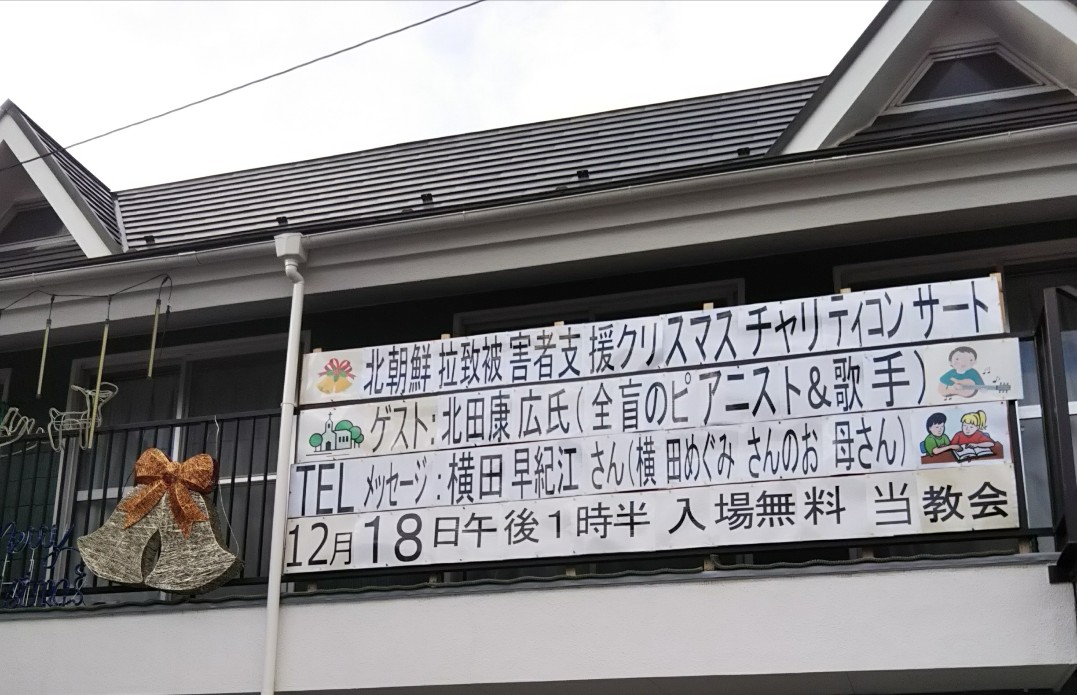 北朝鮮拉致被害者支援クリスマスチャリティコンサート
ゲスト:北田康広氏(全盲のピアニスト&歌手)
TEL メッセージ:横田早紀江さん(横田めぐみさんのお母さん)
12月18日午後1時半 入場無料 当教会